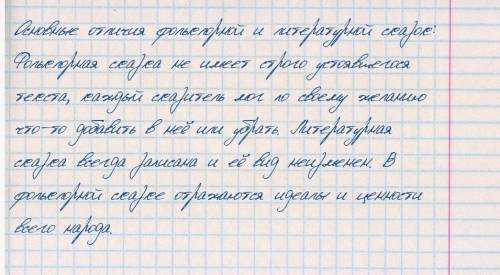 Основные отличия фольклорной и литературной сказок:
Фольклорная сказка не имеет строго устоявшегося
текста, каждый сказитель мог по своему желанию
что-то добавить в неё или убрать. Литературная
сказка всегда записана и её вид неизменен. В
фольклорной сказке отражаются идеалы и ценности
всего народа.